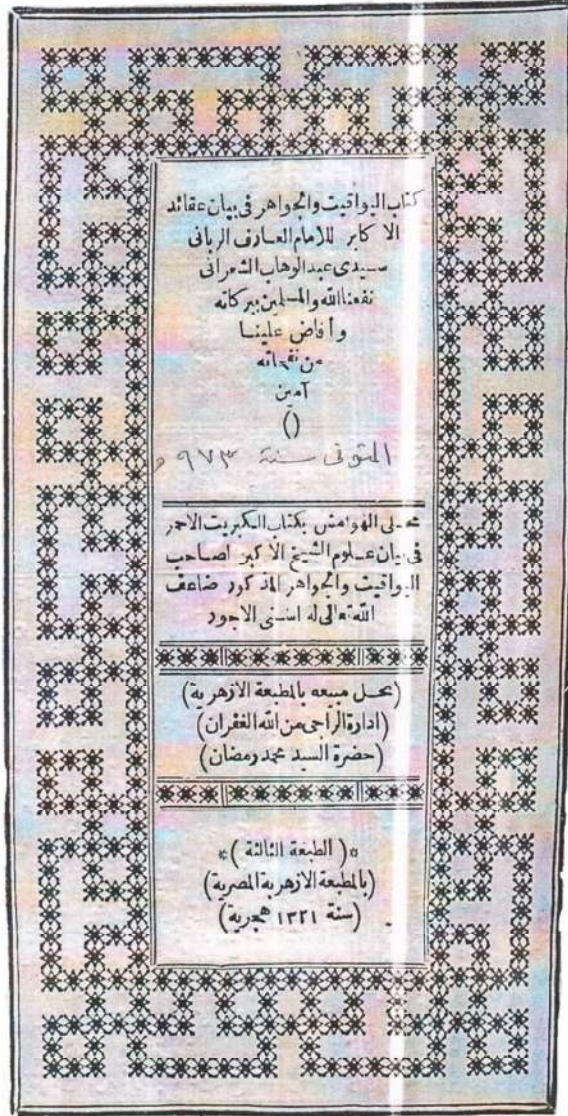 كتاب اليواقيت والجواهر في بيان عقائد
الاكابر للامام العارف الرباني
سيدي عبد الوهاب الشعراني
نفعنا الله والمسلمين ببركاته
وأفاض علينا
من نفحاته
آمين
()
المتوفى سنة ٩٧٣
محلى الهوامش بكتاب الكبريت الاحمر
في بيان علوم الشيخ الاكبر لصاحب
اليواقيت والجواهر المذكور ضاعف
الله تعالى له اسنى الاجور
(محل مبيعه بالمطبعة الازهرية)
(ادارة الراجي من الله الغفران)
(حضرة السيد محمد رمضان)
*(الطبعة الثالثة)*
(بالمطبعة الازهرية المصرية)
(سنة ١٣٢١ هجرية)